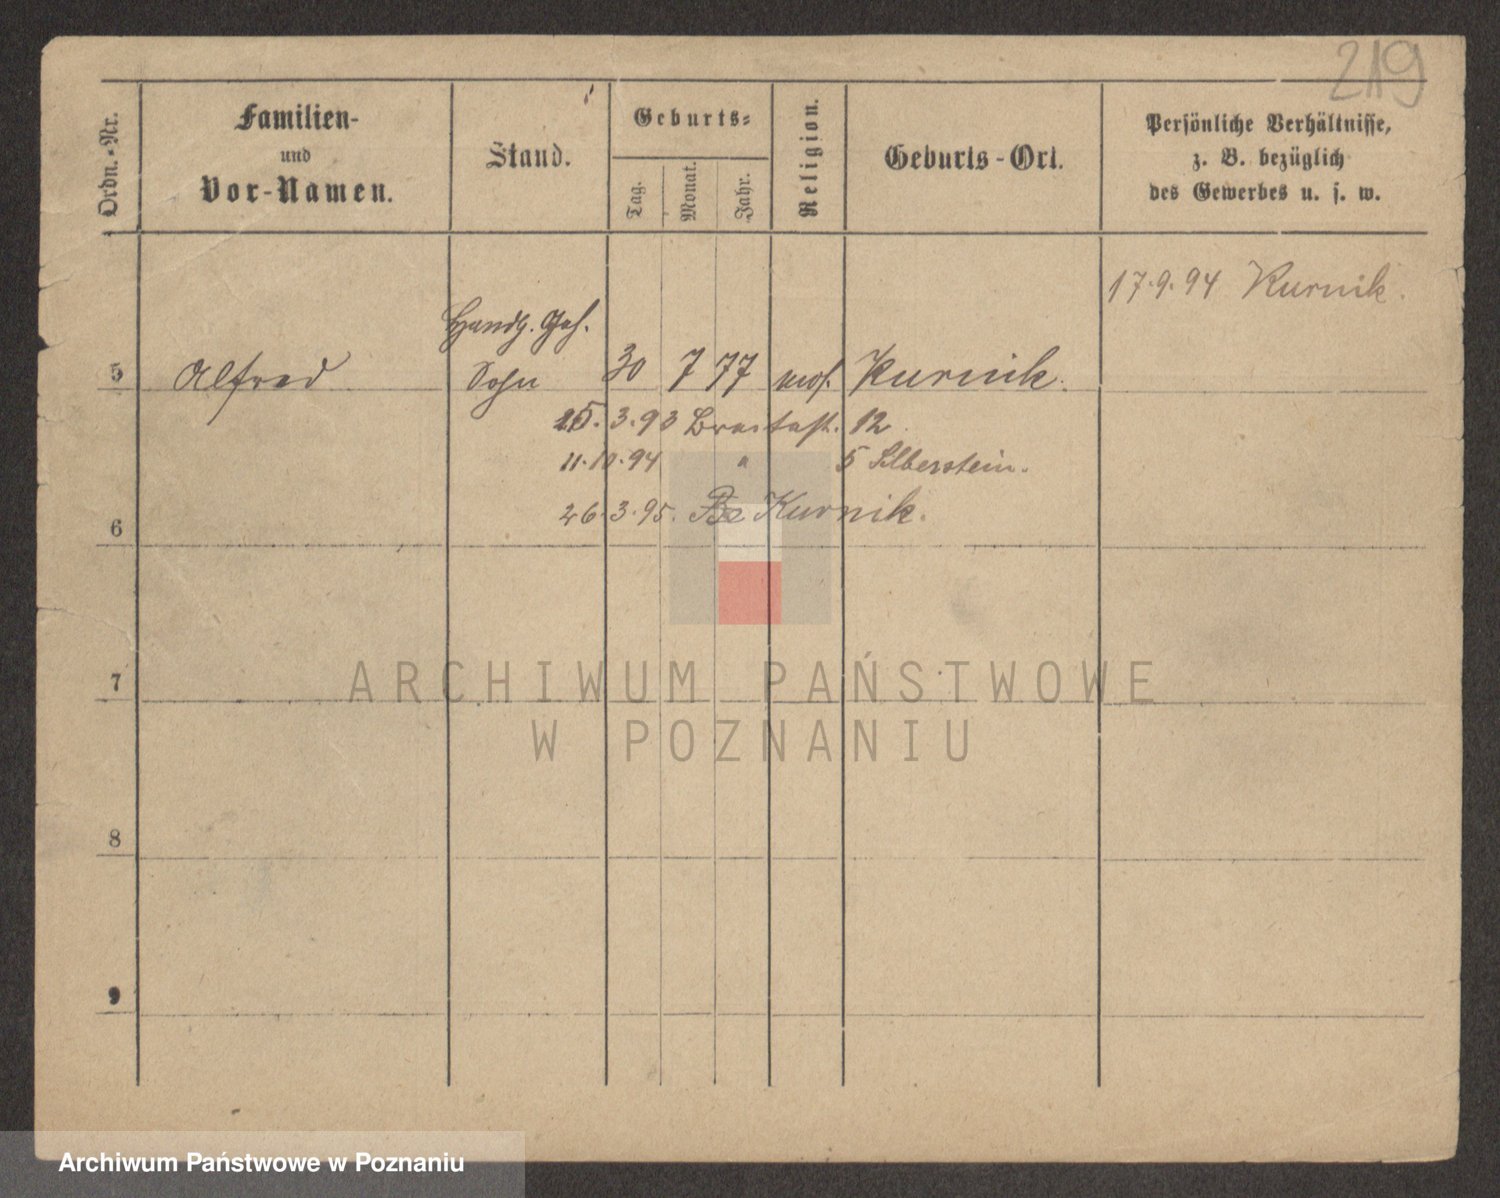 219
Ordn.-Nr.
Familien-
und
Vor-Namen.
Stand.
Geburts-
Tag.
Monat.
Jahr.
Religion.
Geburts-Ort.
Persönliche Verhältnisse,
z. B. bezüglich
des Gewerbes u. s. w.
17.9.94 Kurnik.
Handg. Geh.
5 Alfred Sohn 30 7 77 mos. Kurnik.
15.3.93 Breitestr. 12
11.10.94 " 5 Silberstein.
26.3.95. Kurnik.
6
7
8
9
ARCHIWUM PAŃSTWOWE
W POZNANIU
Archiwum Państwowe w Poznaniu